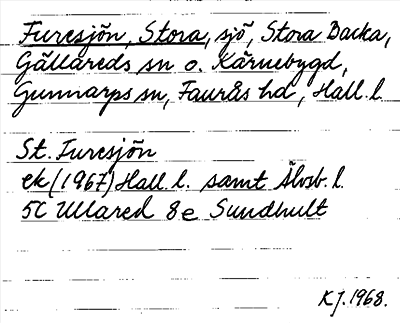 Furesjön, Stora, sjö, Stora Backa,
Gällareds sn o. Kärnebygd,
Gunnarps sn, Faurås hd, Hall. l.
St. Furesjön
ek (1967) Hall. l. samt Älvsb. l.
5C Ullared 8e Sundhult
KJ. 1968.